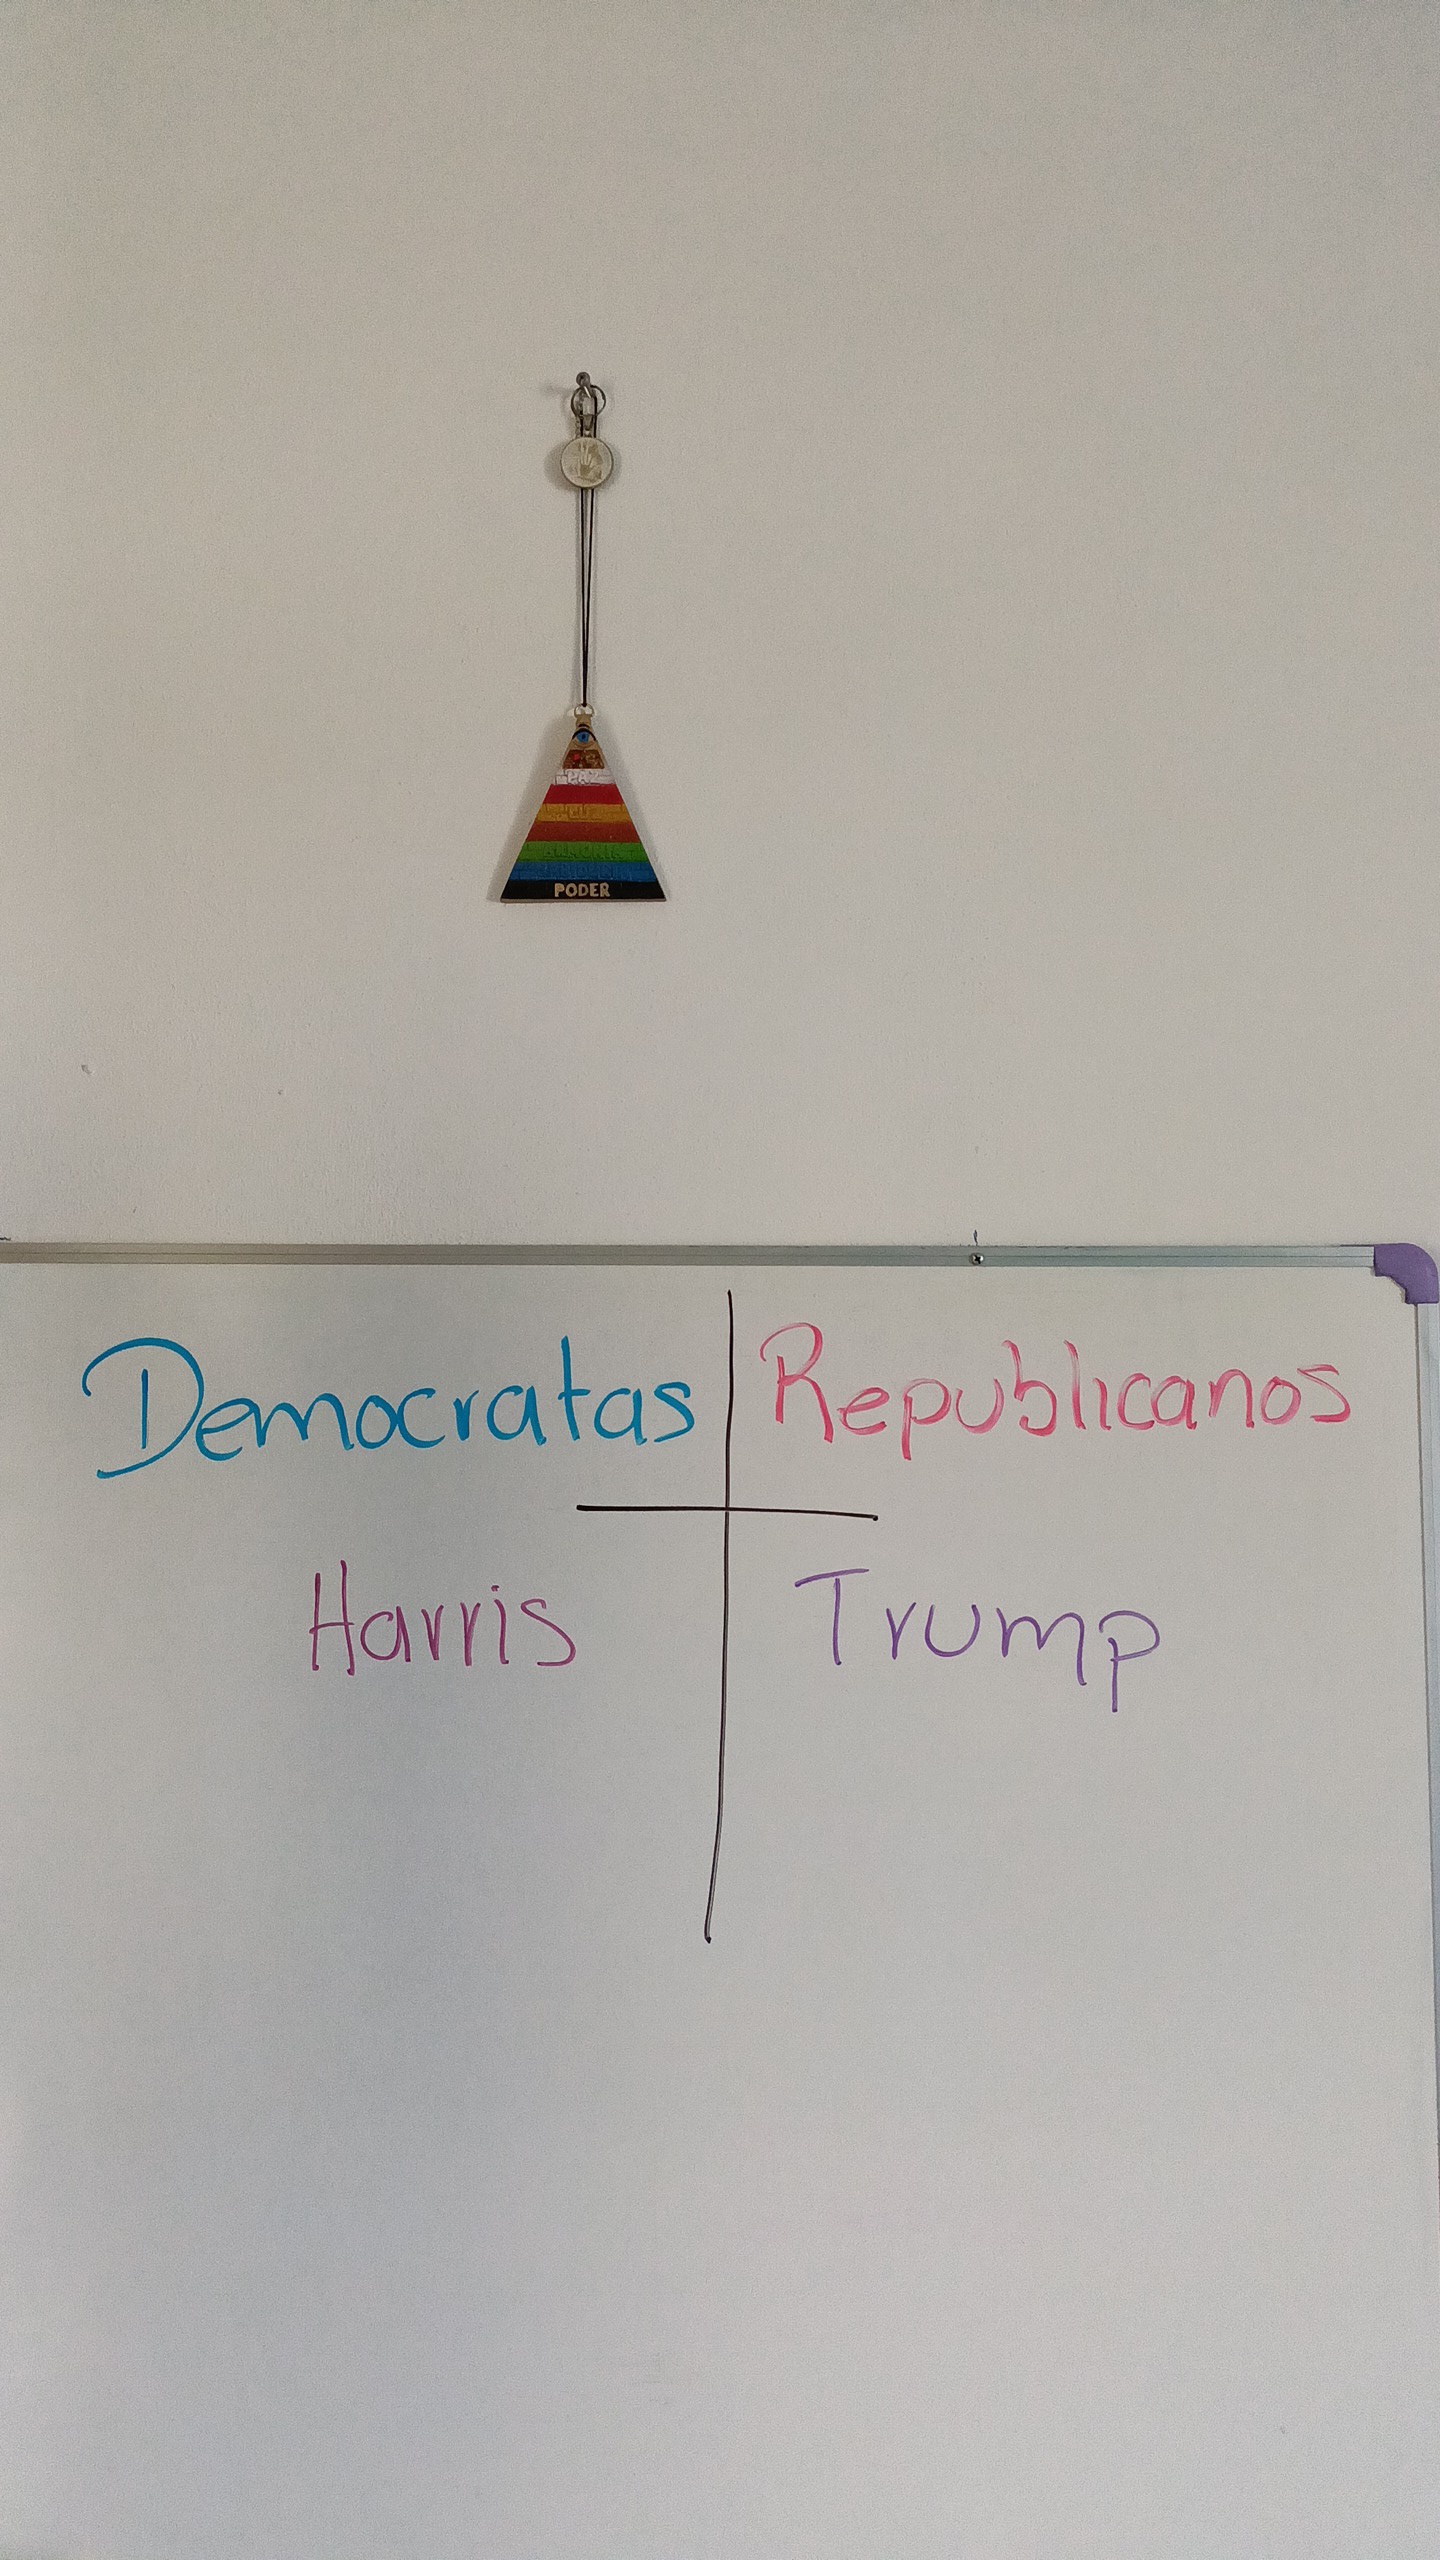 PAZ
LUZ
ARMONIA
PODER
Democratas
Republicanos
Harris
Trump